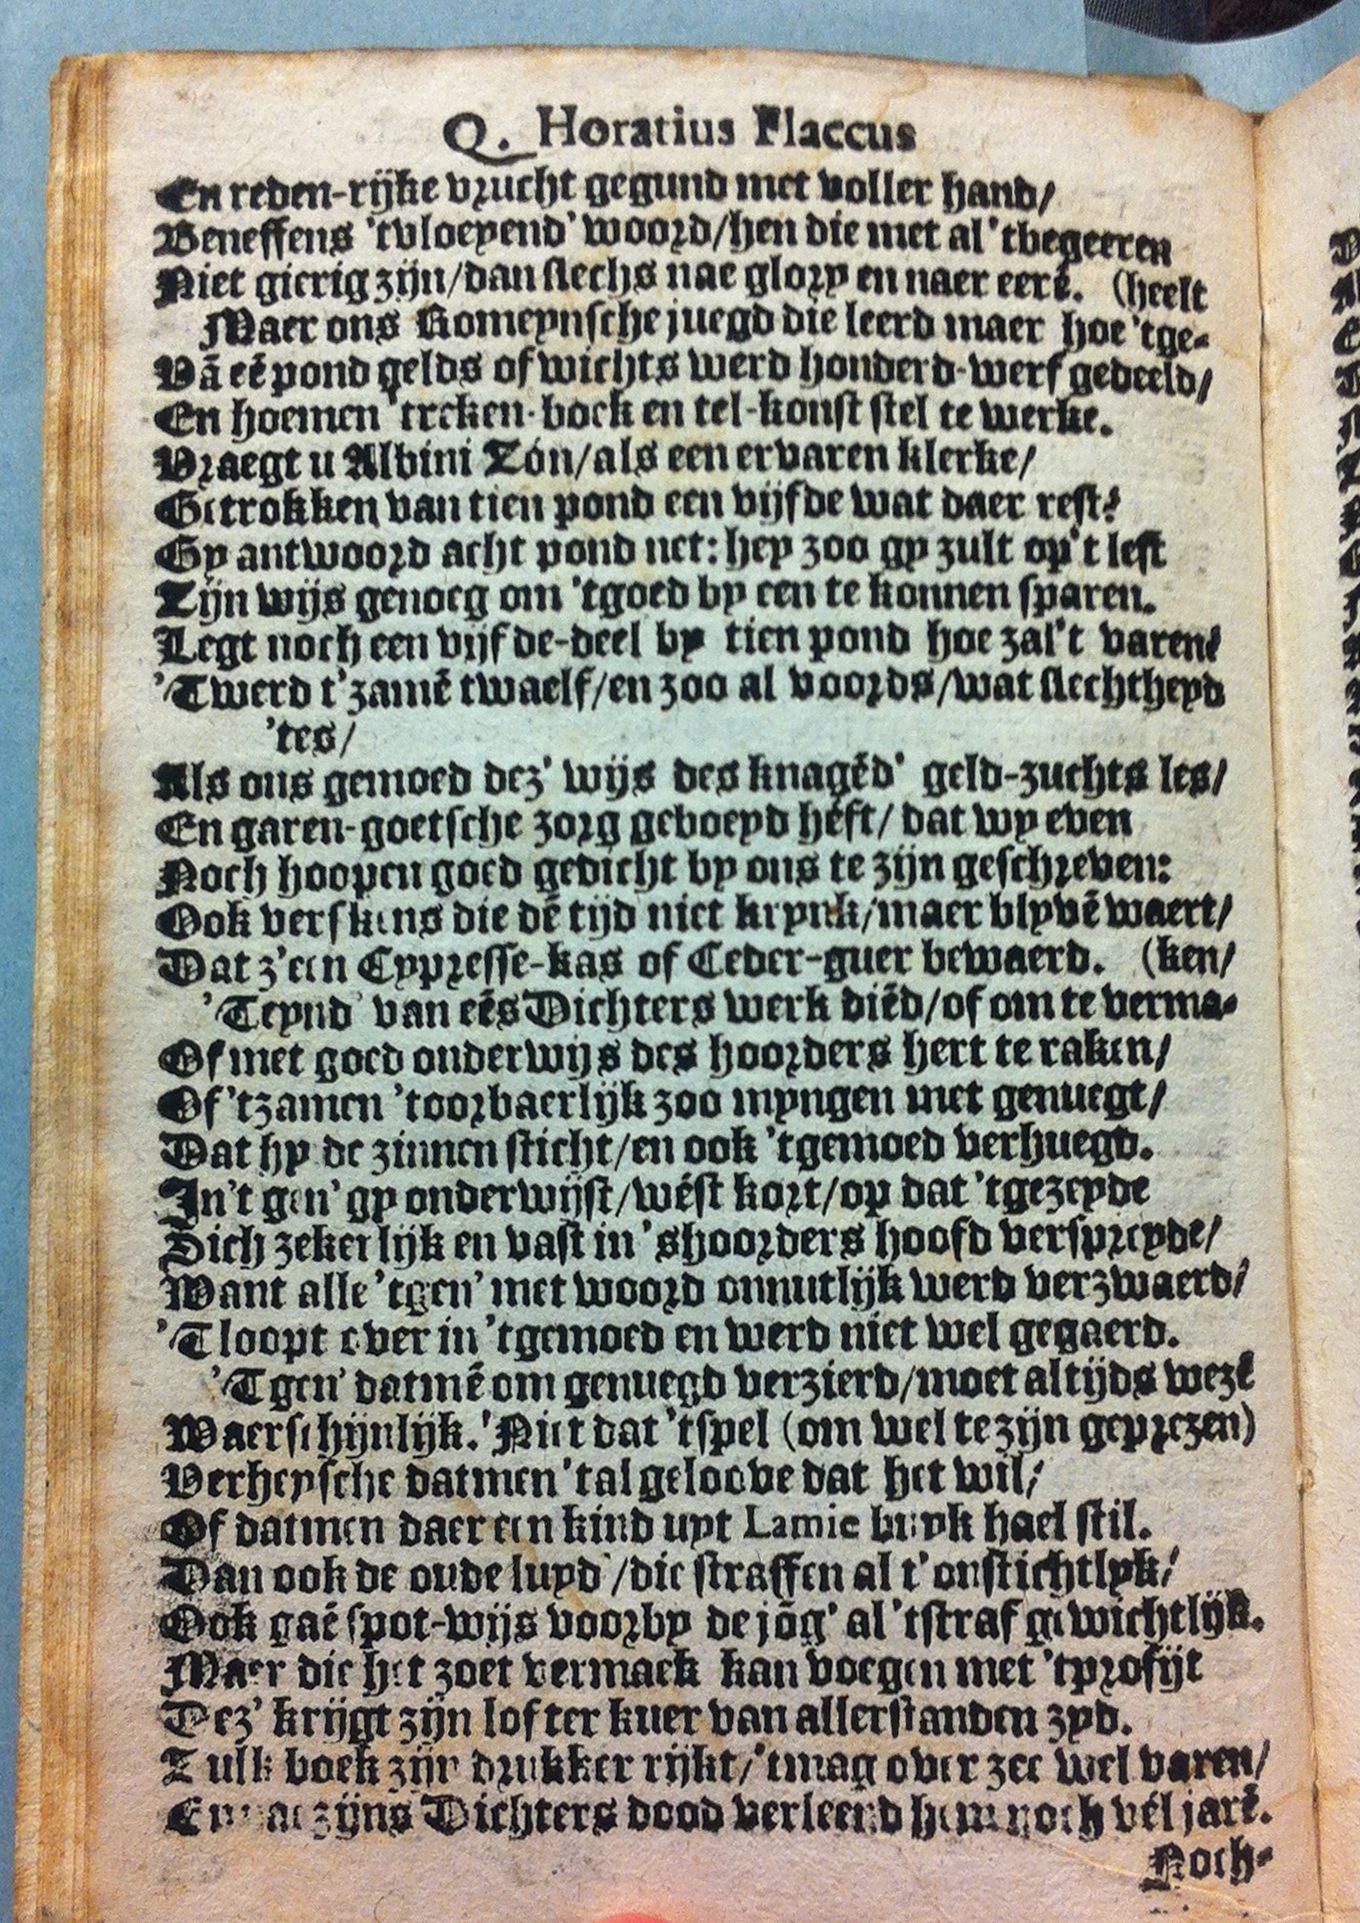 Q. Horatius Flaccus
En reden-rijke vrucht gegund met voller hand/
Beneffens 'tvloeyend' woord/hen die met al 'tbegeeren
Niet gierig zijn/dan slechs nae glory en naer eerẽ. (heelt
Maer ons Romeynsche juegd die leerd maer hoe 'tge-
Vã eẽ pond gelds of wichts werd honderd-werf gedeeld/
En hoemen 'treken-boek en tel-konst stel te werke.
Vraegt u Albini Zón/als een ervaren klerke/
Getrokken van tien pond een vijfde wat daer rest?
Gy antwoord acht pond net: hey zoo gy zult op't lest
Zijn wijs genoeg om 'tgoed by een te konnen sparen.
Legt noch een vijfde-deel by tien pond hoe zal't varen?
'Twerd t'zamẽ twaelf/en zoo al voords/wat slechtheyd
'tes/
Als ons gemoed dez' wijs des knagẽd' geld-zuchts les/
En garen-goetsche zorg geboeyd héft/ dat wy even
Noch hoopen goed gedicht by ons te zijn geschreven:
Ook verskens die dẽ tijd niet krynk/maer blyvẽ waert/
Dat z'een Cypresse-kas of Ceder-guer bewaerd. (ken/
'Teynd' van eẽs Dichters werk diẽd/of om te verma-
Of met goed onderwijs des hoorders hert te raken/
Of 'tzamen 'toorbaerlijk zoo myngen met genuegt/
Dat hy de zinnen sticht/en ook 'tgemoed verhuegd.
In't gen' gy onderwijst/wést kort/op dat 'tgezeyde
Zich zekerlijk en vast in 'shoorders hoofd verspreyde/
Want alle 'tgen' met woord onnutlijk werd verzwaerd/
'Tloopt over in 'tgemoed en werd niet wel gegaerd.
'Tgen' datmẽ om genuegd verzierd/moet altijds wezẽ
Waerschijnlijk. Niet dat 'tspel (om wel te zijn geprezen)
Verheysche datmen 'tal geloove dat het wil/
Of datmen daer een kind uyt Lamie buyk hael stil.
Dan ook de oude luyd'/die straffen al t'onstichtlyk/
Ook gaẽ spot-wijs voorby de jõg' al 'tstraf gewichtlijk.
Maer die het zoet vermaek kan voegen met 'tprofijt
Dez' krijgt zijn lof ter kuer van allerstanden zyd.
Zulk boek zijn drukker rijkt/'tmag over zee wel varen/
En nae zijns Dichters dood verleend hem noch vél jarẽ.
Noch-